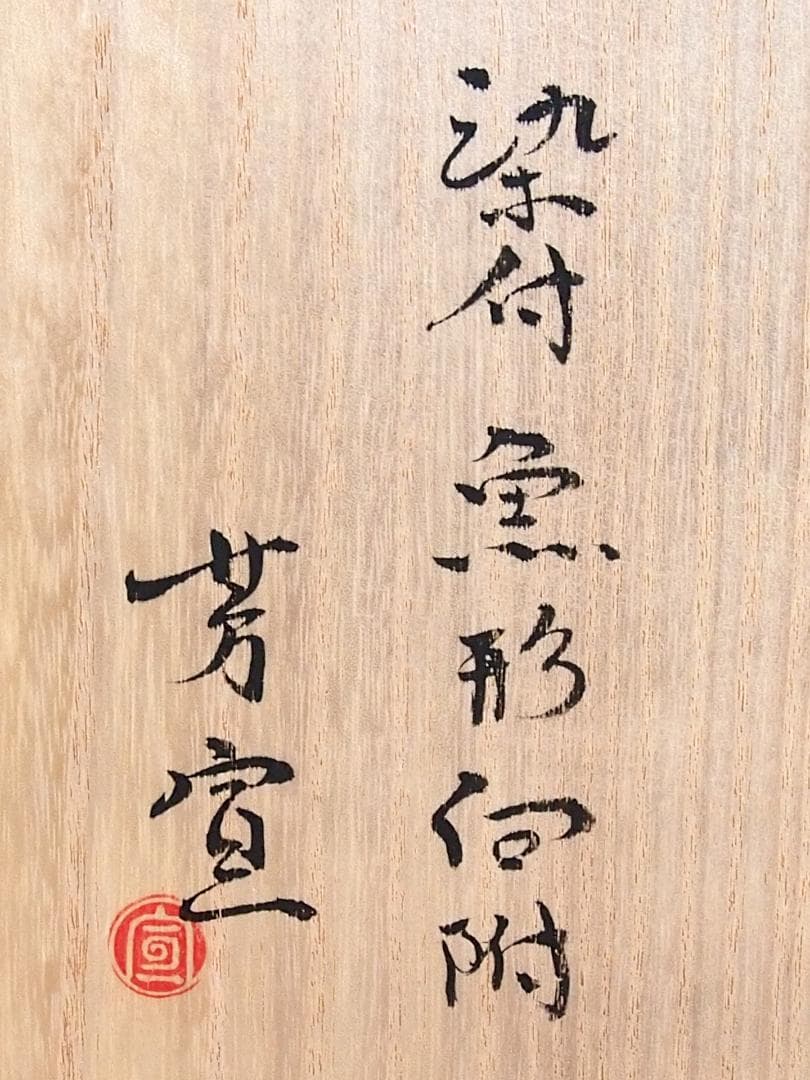 染付 魚形向附
芳宣
宣